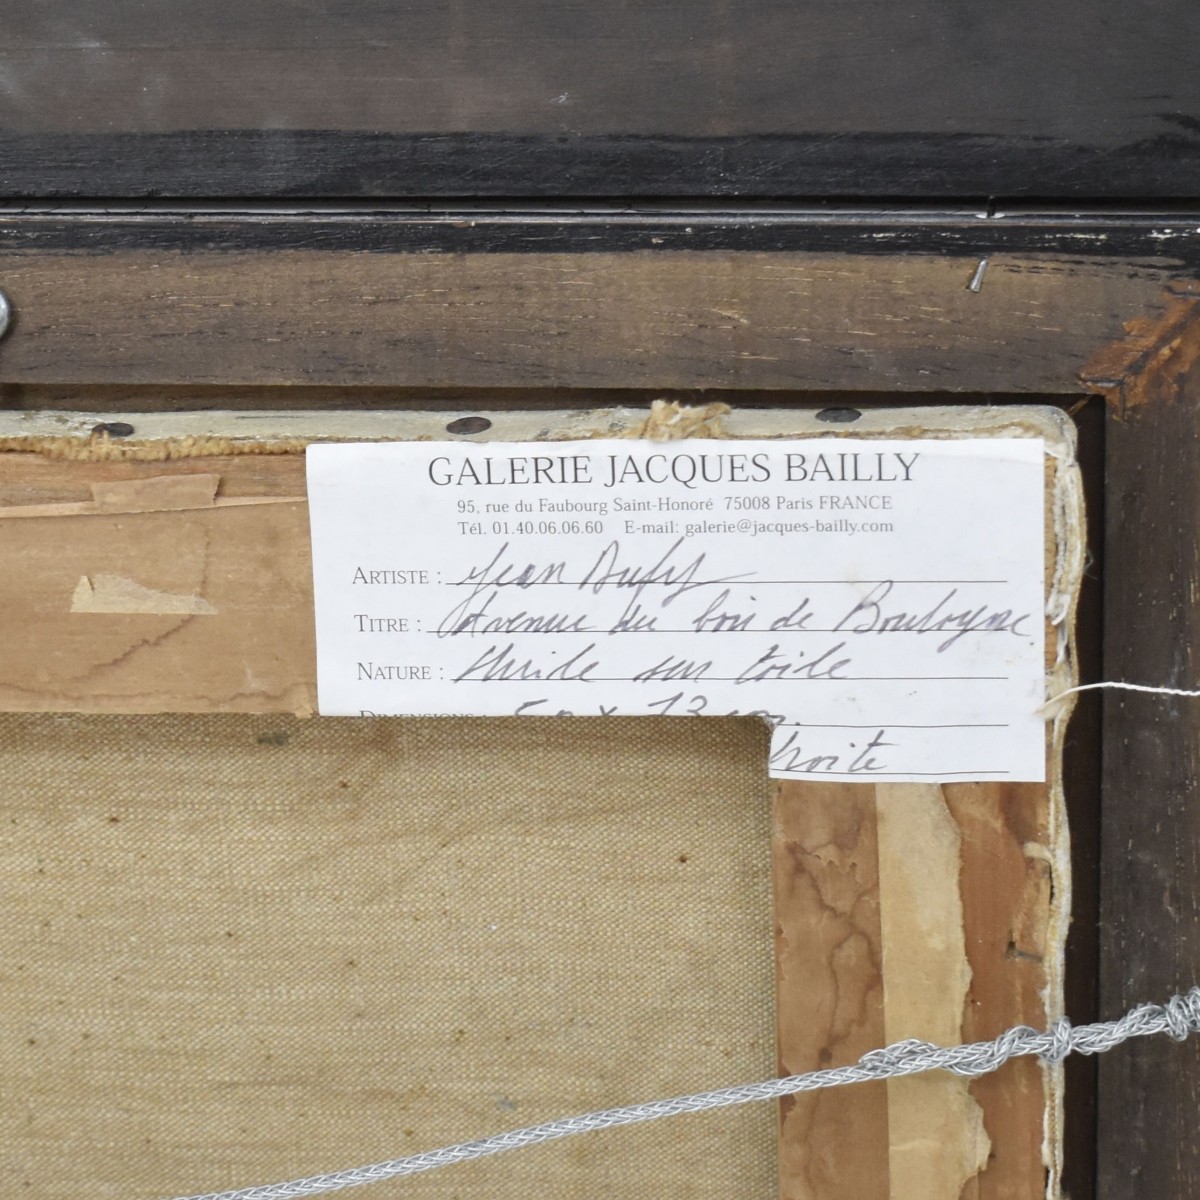 GALERIE JACQUES BAILLY
95, rue du Faubourg Saint-Honoré 75008 Paris FRANCE
Tél. 01.40.06.06.60 E-mail: galerie@jacques-bailly.com
ARTISTE : Jean Dufy
TITRE : Avenue du bois de Boulogne
NATURE : Huile sur toile
DIMENSIONS : 50 x 73 cm.
droite